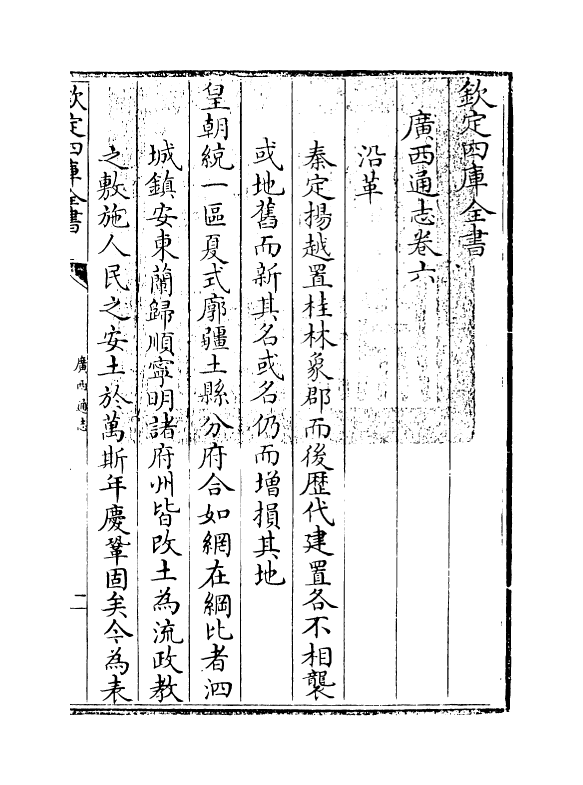 欽定四庫全書
廣西通志卷六
沿革
秦定揚越置桂林象郡而後歴代建置各不相襲
或地舊而新其名或名仍而増損其地
皇朝統一區夏式廓疆土縣分府合如網在綱比者泗
城鎮安東蘭歸順寧明諸府州皆改土為流政教
之敷施人民之安土於萬斯年慶鞏固矣今為表
欽定四庫全書
廣西通志
二